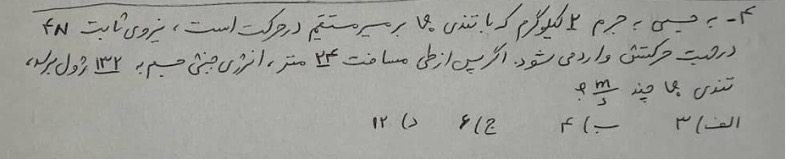 ۴- به جسمی به جرم ۲ کیلوگرم که با تندی v₀ بر مسیر مستقیم در حرکت است، نیروی ثابت ۴N
در جهت حرکتش وارد می شود. اگر پس از طی مسافت ۲۴ متر، انرژی جنبشی جسم به ۱۳۲ ژول برسد،
تندی v₀ چند m/s ؟
الف) ۳ ب) ۴ ج) ۶ د) ۱۲